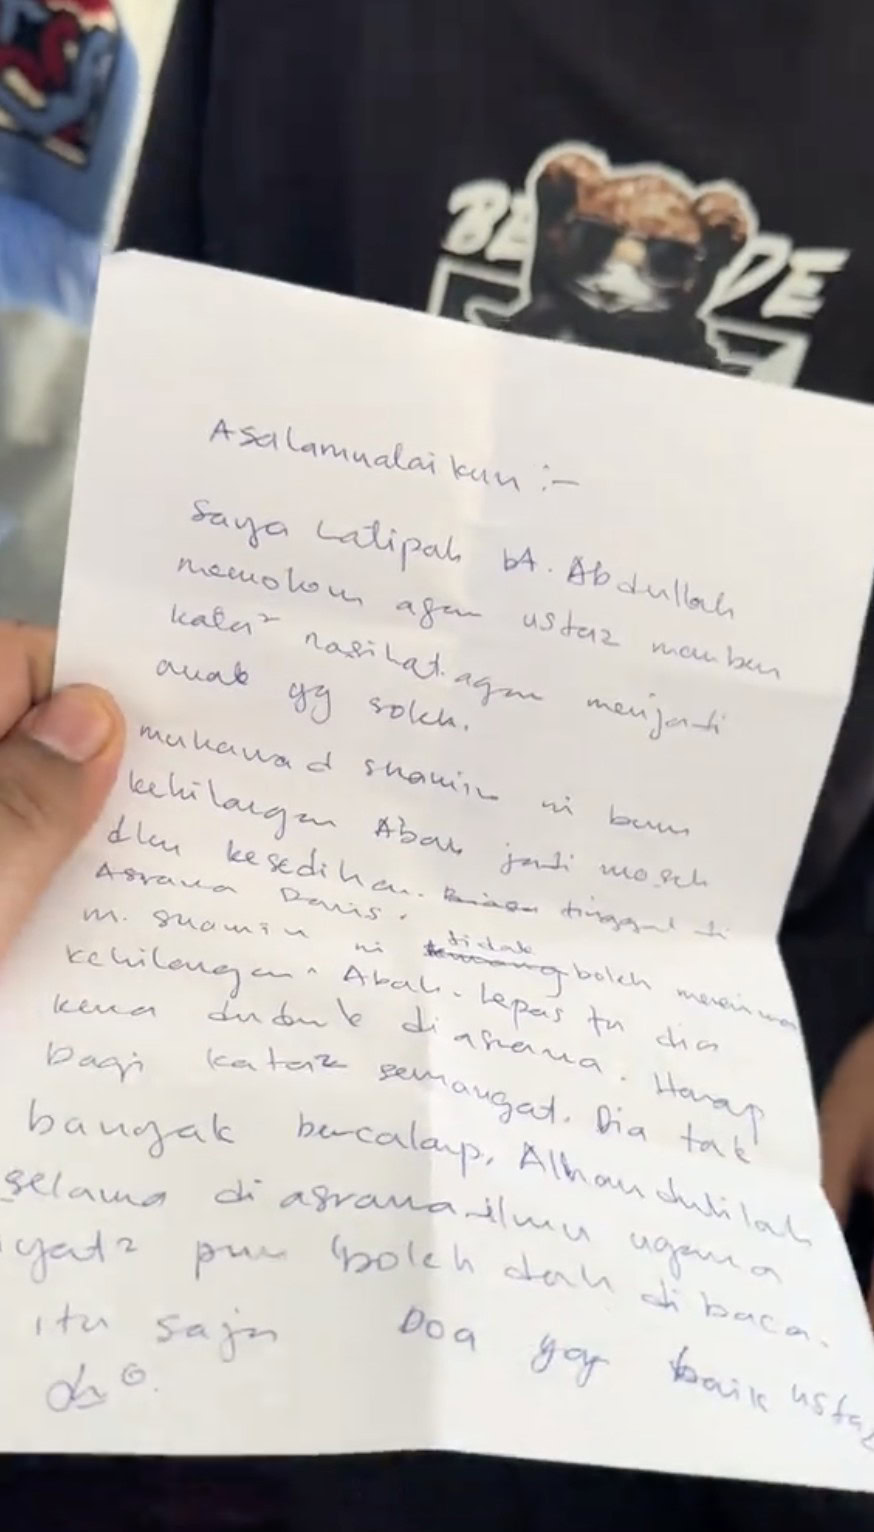 BE
DE
Asalamualaikum :-
Saya Latipah bt. Abdullah
memohon agar ustaz memberi
kata² nasihat agar menjadi
anak yg soleh.
muhamad shamin ni baru
kehilangan Abah jadi maseh
dlm kesedihan. tinggal di
Asrama Daris.
m. shamin ni tidak boleh menerima
kehilangan Abah. Lepas tu dia
kena duduk di asrama. Harap
bagi kata² semangat. Dia tak
banyak bercakap, Alhamdulilah
selama di asrama ilmu ugama
ayat² pun boleh dah di baca.
itu saja Doa yg baik ustaz